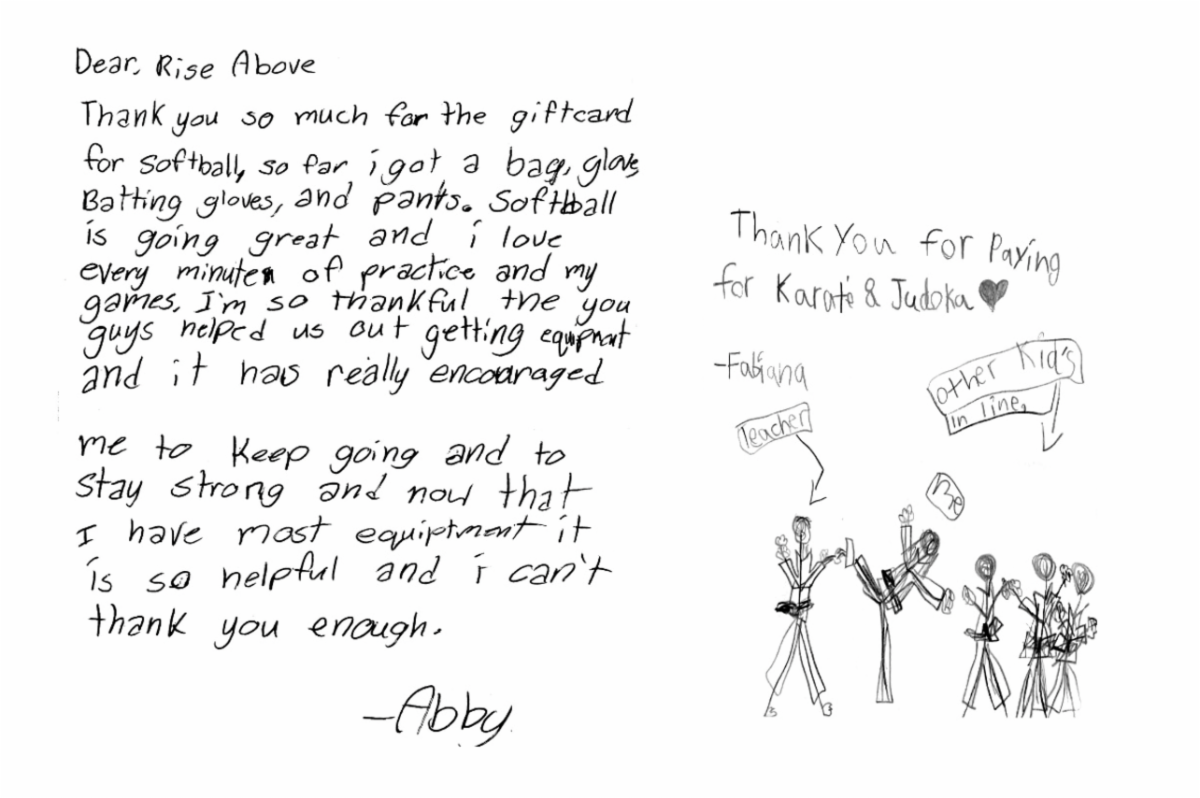 Dear, Rise Above
Thank you so much for the giftcard
for softball, so far i got a bag, glove,
Batting gloves, and pants. Softball
is going great and i love
every minute of practice and my
games. I'm so thankful the you
guys helped us out getting equipment
and it has really encouraged
me to keep going and to
stay strong and now that
I have most equiptment it
is so helpful and i can't
thank you enough.
-Abby
Thank You for Paying
for Karate & Judoka ♥
-Fabiana
Teacher
other Kid's
in line,
Me